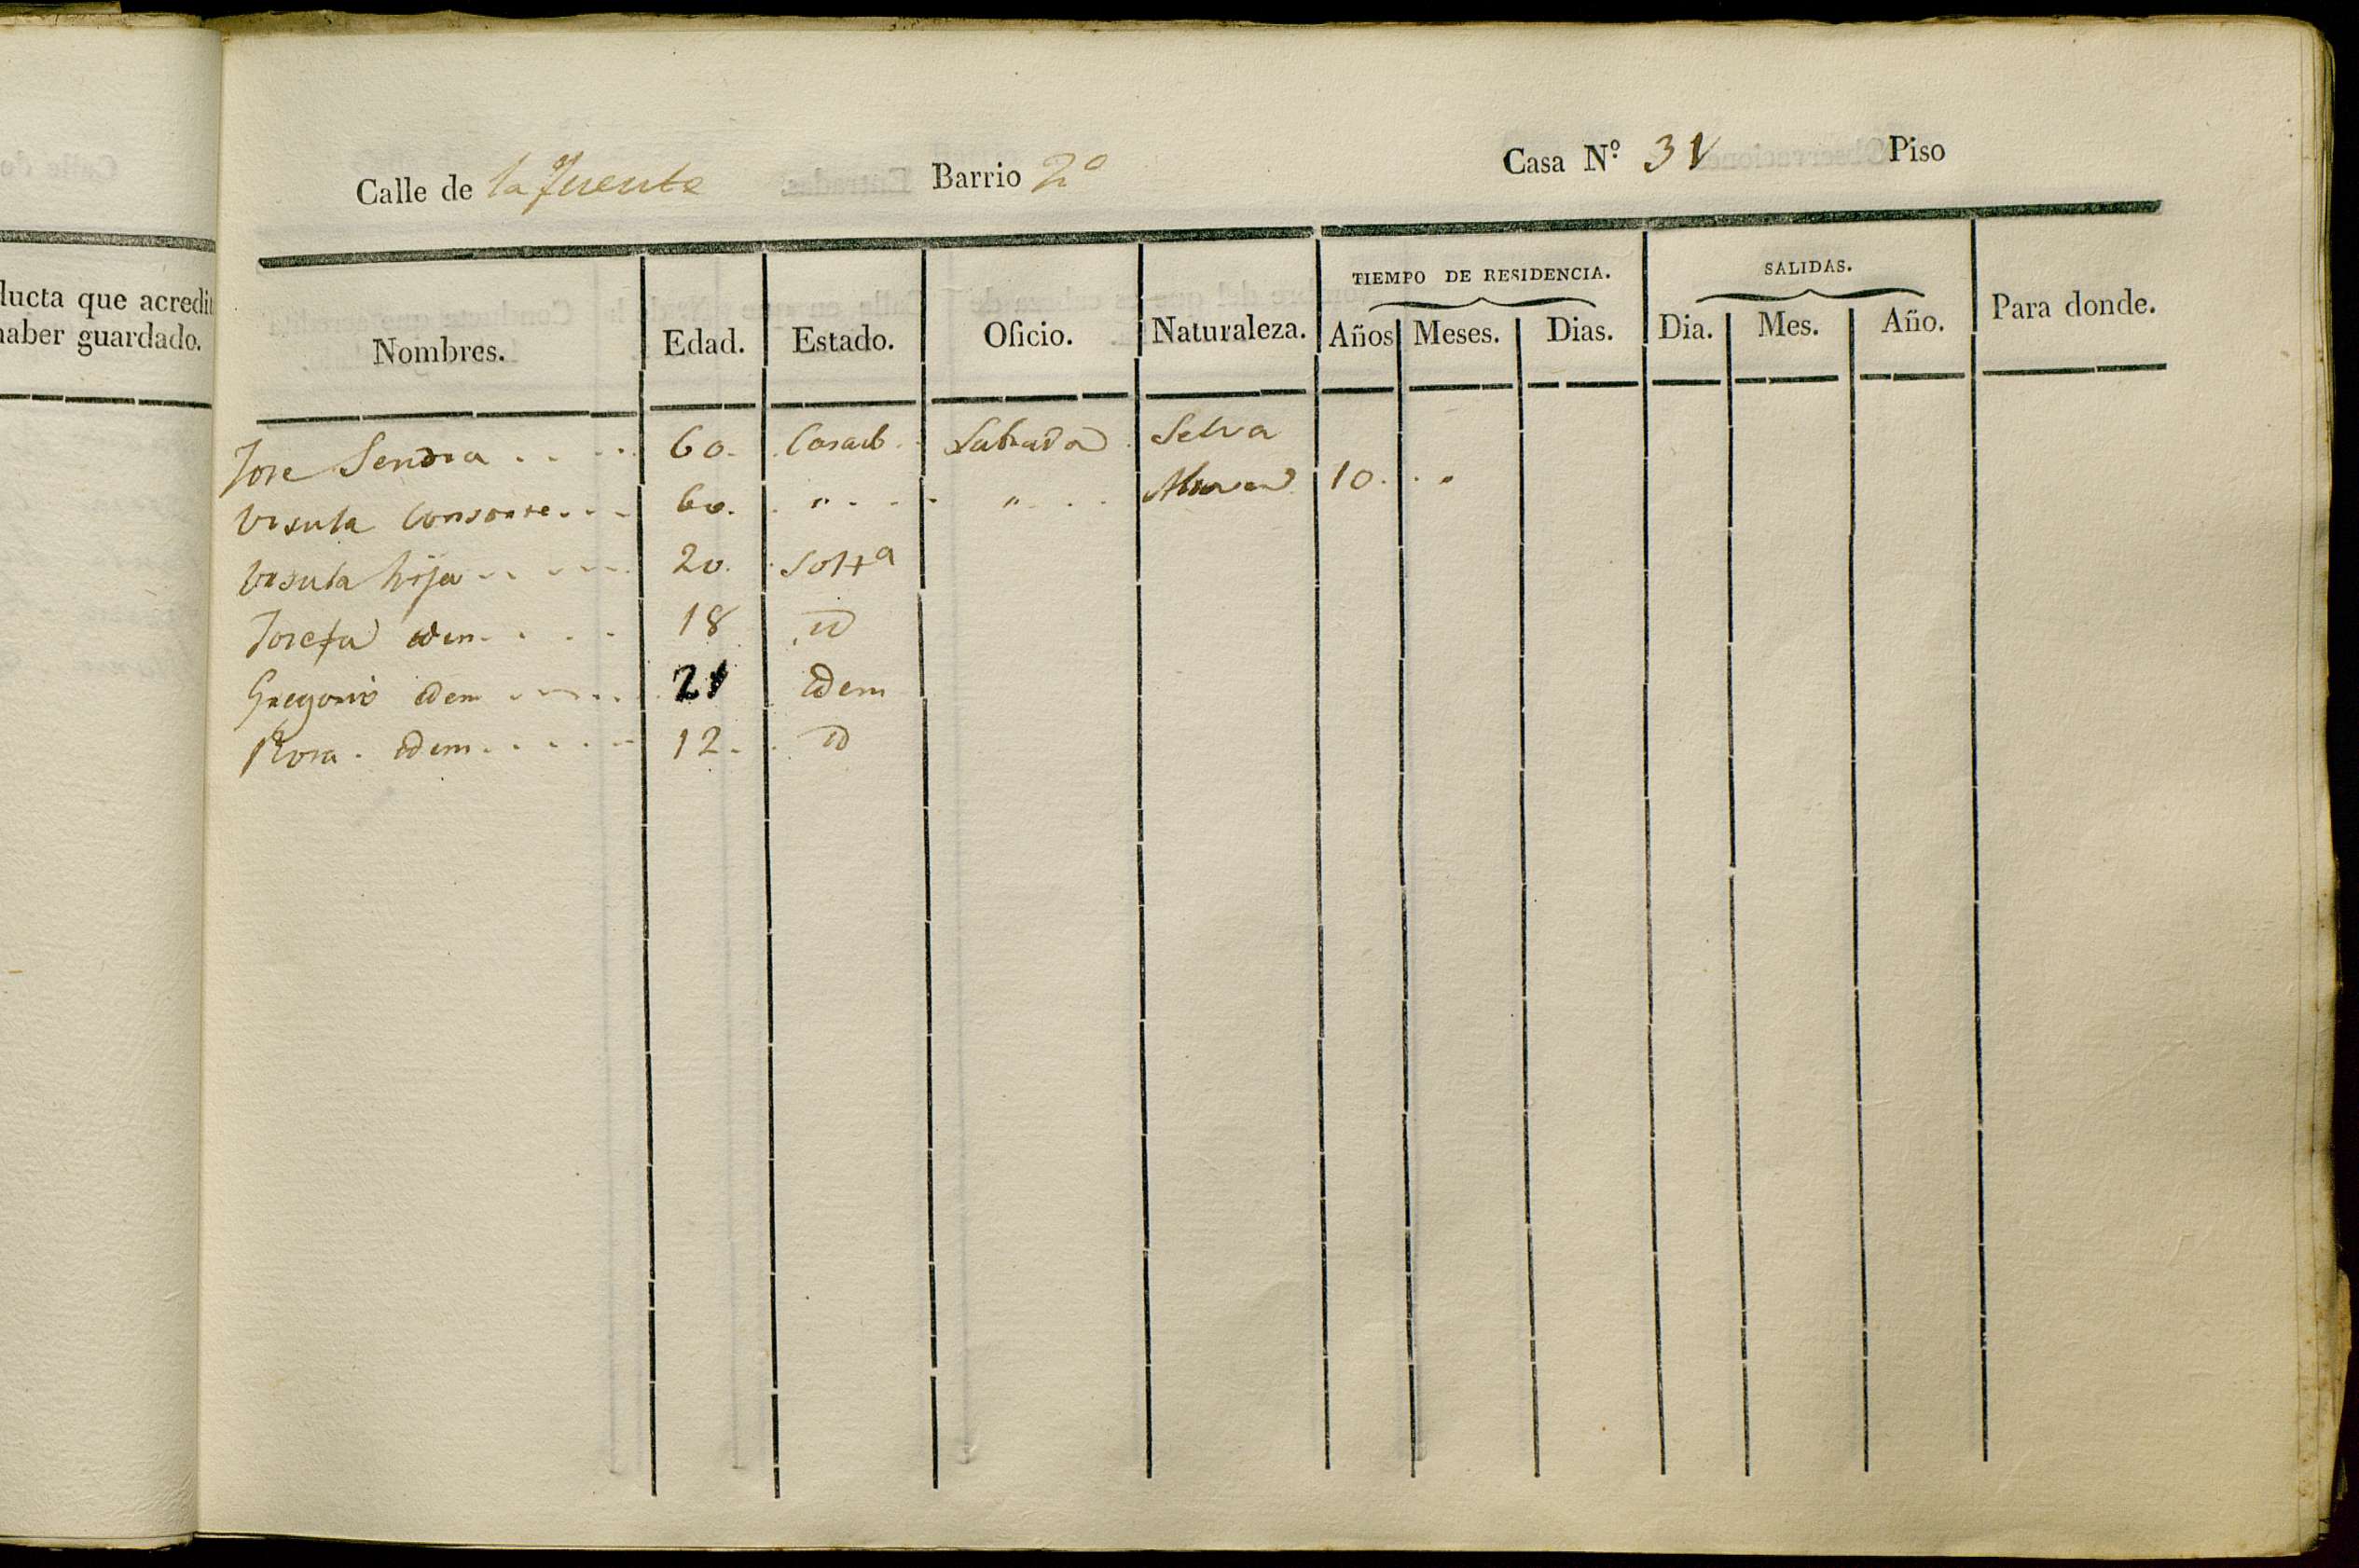 ducta que acredit
haber guardado.
Calle de la Fuente Barrio 2º Casa Nº. 31 Piso
TIEMPO DE RESIDENCIA. SALIDAS.
Nombres. Edad. Estado. Oficio. Naturaleza. Años Meses. Dias. Dia. Mes. Año. Para donde.
Jose Sendra 60. Casado Labrador Selva
Ursula Consorte 60. " " 10.
Ursula hija 20. Solta
Josefa idem 18 id
Gregorio idem 21 idem
Rosa. idem 12. id